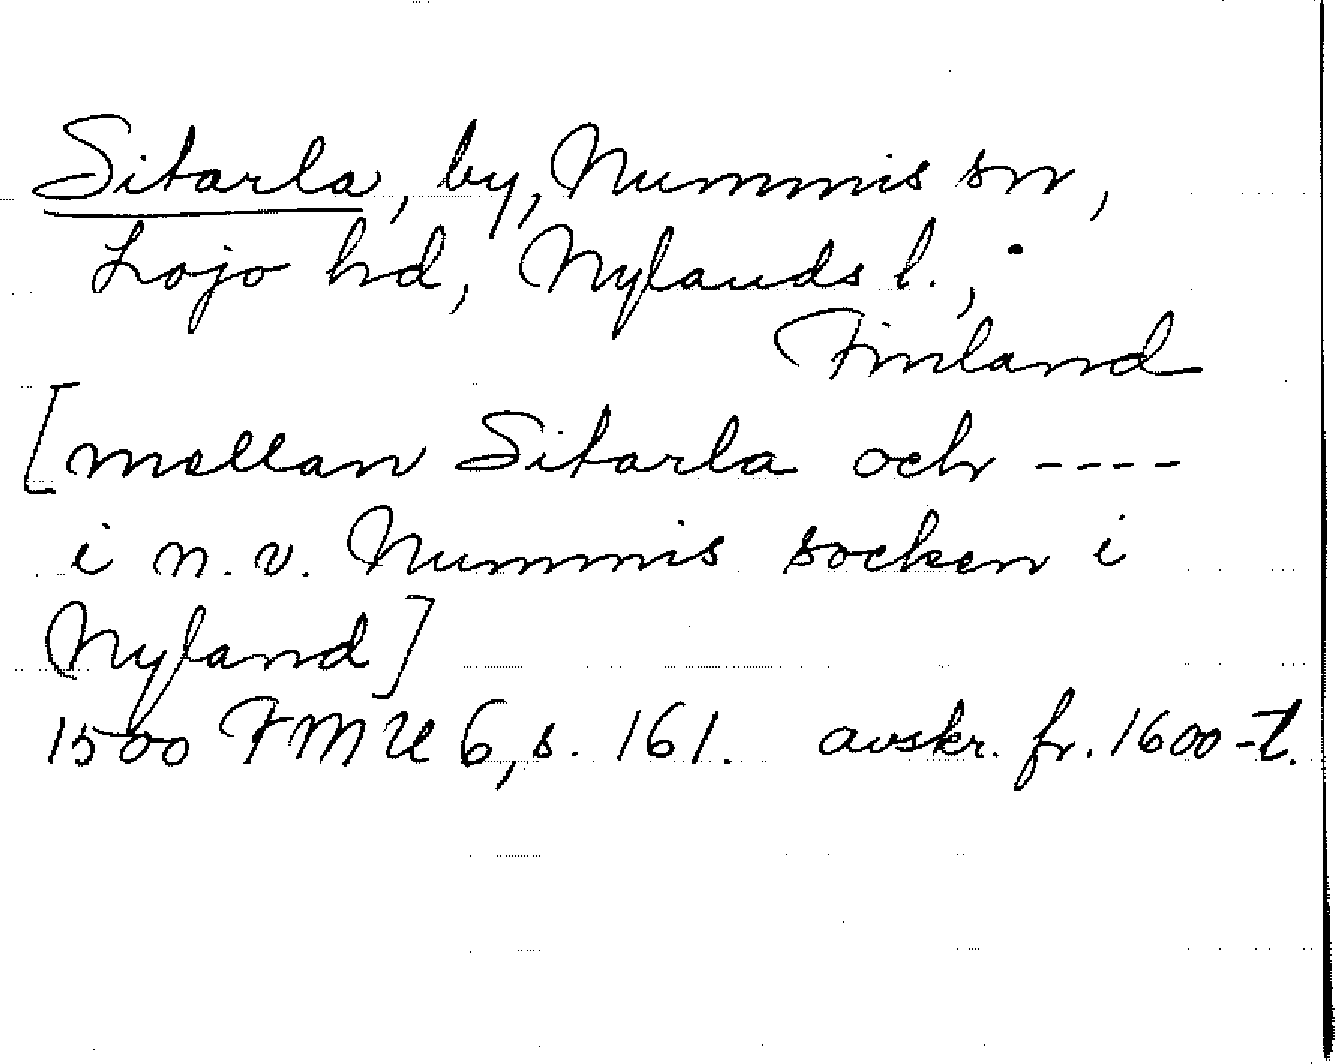 Sitarla, by, Nummis sn,
Lojo hd, Nylands l.,
Finland
[mellan Sitarla och ----
i n.v. Nummis socken i
Nyland]
1500 FMU 6, s. 161. avskr. fr. 1600-t.